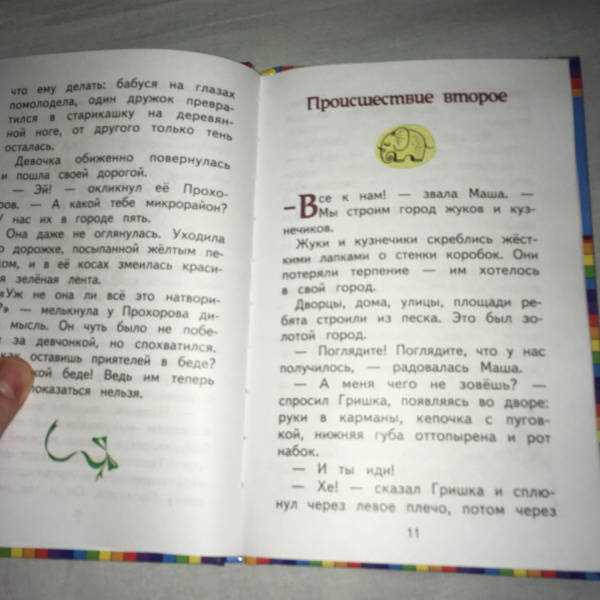 что ему делать: бабуся на глазах
помолодела, один дружок превра-
тился в старикашку на деревян-
ной ноге, от другого только тень
осталась.
Девочка обиженно повернулась
и пошла своей дорогой.
— Эй! — окликнул её Прохо-
ров. — А какой тебе микрорайон?
У нас их в городе пять.
Она даже не оглянулась. Уходила
о дорожке, посыпанной жёлтым пе-
ком, и в её косах змеилась краси-
я зелёная лента.
«Уж не она ли всё это натвори-
?» — мелькнула у Прохорова ди-
мысль. Он чуть было не побе-
за девчонкой, но спохватился.
как оставишь приятелей в беде?
кой беде! Ведь им теперь
показаться нельзя.
Происшествие второе
– Все к нам! — звала Маша. —
Мы строим город жуков и куз-
нечиков.
Жуки и кузнечики скреблись жёст-
кими лапками о стенки коробок. Они
потеряли терпение — им хотелось
в свой город.
Дворцы, дома, улицы, площади ре-
бята строили из песка. Это был зо-
лотой город.
— Поглядите! Поглядите, что у нас
получилось, — радовалась Маша.
— А меня чего не зовёшь? —
спросил Гришка, появляясь во дворе:
руки в карманы, кепочка с пугов-
кой, нижняя губа оттопырена и рот
набок.
— И ты иди!
— Хе! — сказал Гришка и сплю-
нул через левое плечо, потом через
11